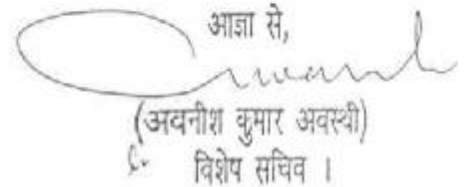 आज्ञा से,
(अवनीश कुमार अवस्थी)
विशेष सचिव ।